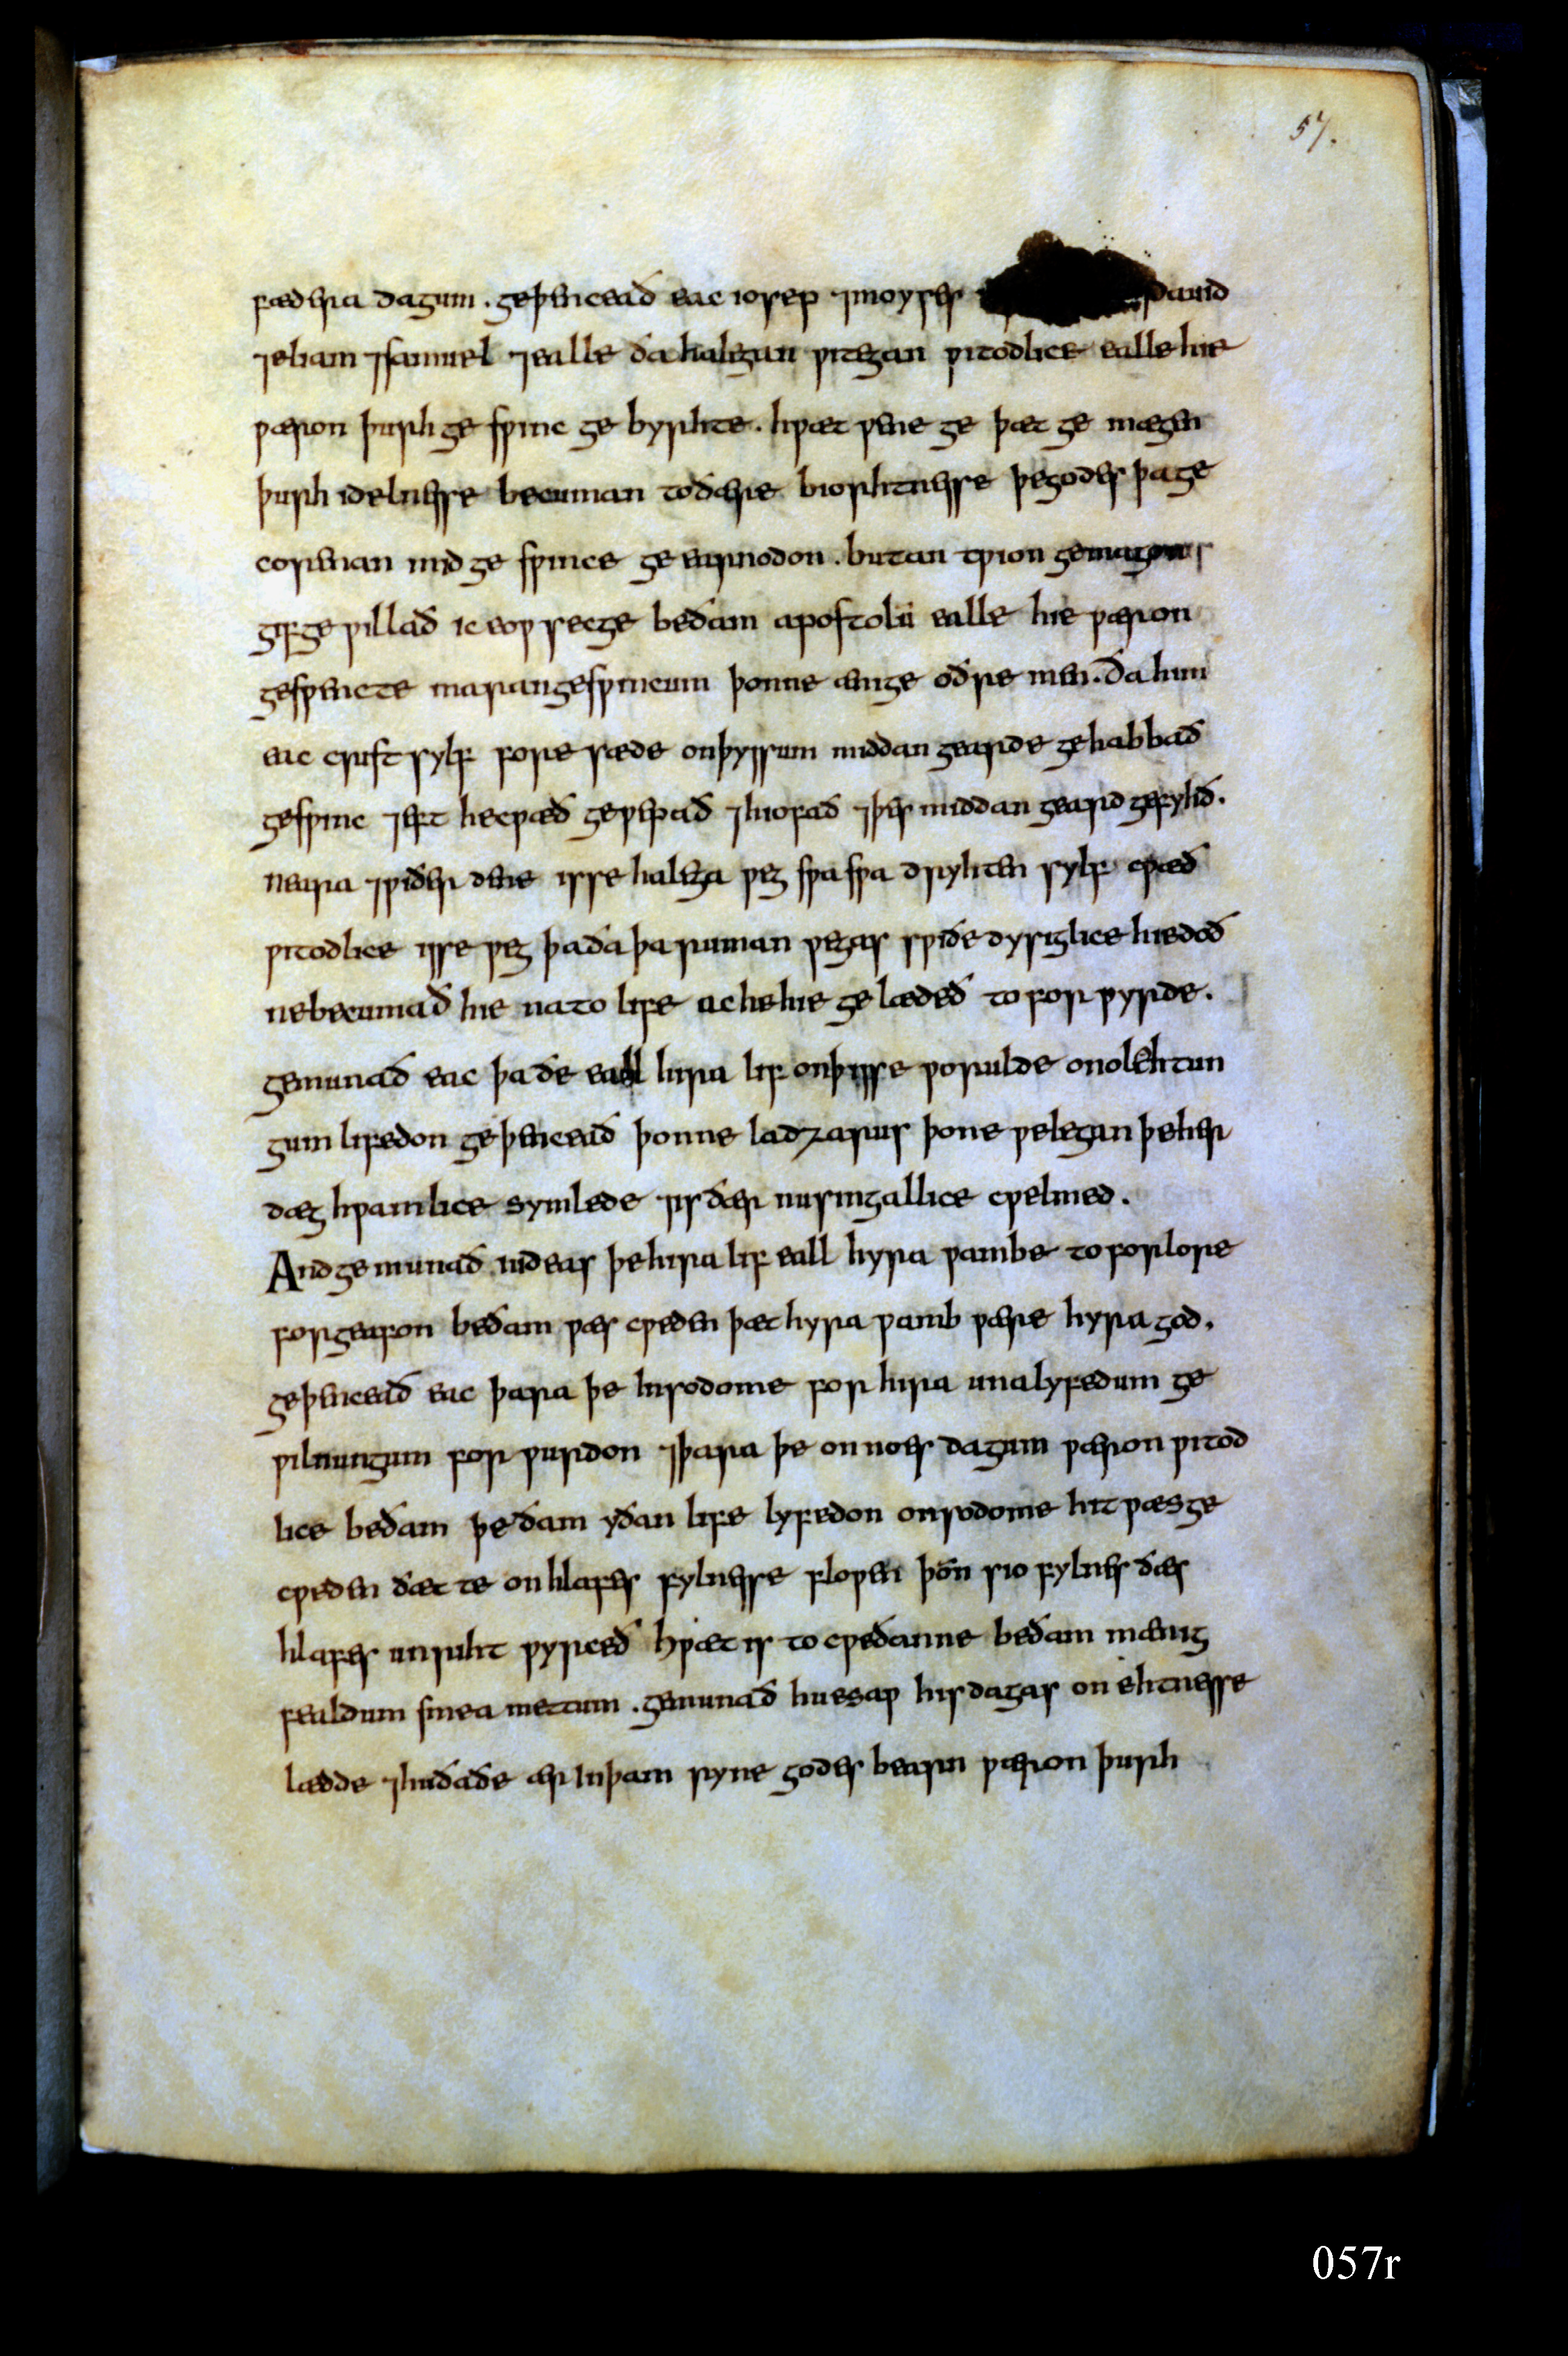 57.
fædera dagum . geþenceað eac iosep ⁊moyses dauid
⁊eliam ⁊samuel ⁊ealle ða halegan witegan witodlice ealle hie
wæron þurh ge swinc ge byrhte . hwæt wene ge þæt ge mægen
þurh idelnesse becuman toðære biorhtnesse þegodes þage
corenan mid ge swince ge earnodon . butan tweon gemagon
gifge willað ic eow secge beðam apostolū ealle hie wæron
geswencte marangeswincum þonne ænige oðre men . ða him
eac crist sylf fore sæde onþyssum middan gearde gehabbað
geswinc ⁊eft hecwæð gewepað ⁊hiofað ⁊þes middan geard gefyhð .
neara ⁊wiðer dene isse halega weg swa swa dryhten sylf cwæð
witodlice isse weg þaða þa ruman wegas swiðe dysiglice hiedoð
nebecumað hie na to life ac hehie ge lædeð to for wyrde .
gemunað eac þa ðe eall hira lif onþisse worulde onolehtun
gum lifedon ge þenceað þonne ladzarus þone welegan þeher
dæg hwamlice symlede ⁊is ðær nusingallice cwelmed .
And ge munað iudeas þehira lif eall hyra wambe to forlore
forgeafon beðam wæs cweden þæt hyra wamb wære hyra god .
geþenceað eac þara þe insodome for hira unalyfedum ge
wilnungum for wurdon ⁊þara þe on noes dagum wæron witod
lice beðam þe ðam yðan life lyfedon onsodome hit wæs ge
cweden ðæt te on hlafes fylnesse flowen þon̄ sio fylnes ðæs
hlafes unriht wyrceð hwæt is to cweðanne beðam mænig
fealdum smea mettum . gemunað hu esaw his dagas on ehtnesse
lædde ⁊hu ða ðe ær in þam ryne godes bearn wæron þurh
057r